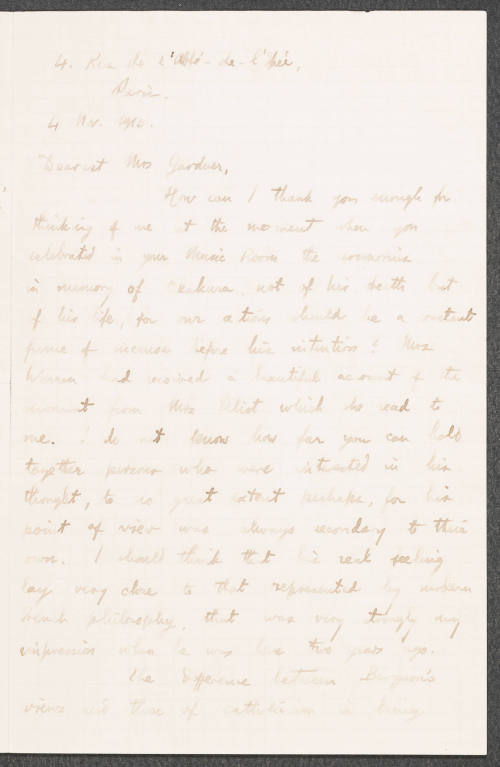 4. Rue de l'Abbé-de-l'Épée,
Paris.
4 Nv.
Dearest Mrs Gardner,
How can I thank you enough for
thinking of me at the moment when you
celebrated in your Music Room the
in memory of Okakura, not of his death but
of his life, for our actions should be a constant
fume of incense before his intuition! Mrs
Warren had received a beautiful account of the
moment from Mrs which she read to
me. I do not know how far you can hold
together persons who were interested in his
thought, to no great extent perhaps, for his
point of view was always secondary to their
own. I should think that his real feeling
lay very close to that represented by modern
French philosophy, that was very strongly my
impression when he was here two years ago.
The difference between Bergson's
views and those of catholicism is being